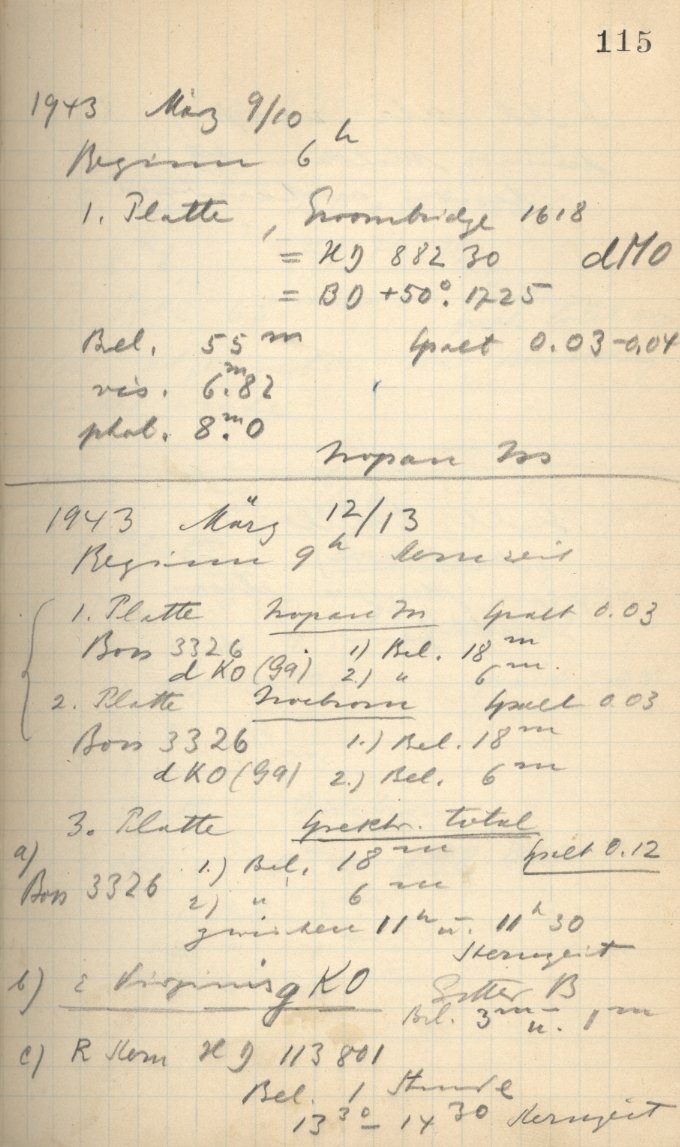 115
1943 März 9/10
Beginn 6h
1. Platte, Groombridge 1618
= HD 88230 dM0
= BD +50°.1725
Bel. 55m Spalt 0.03-0.04
vis. 6m.82
phot. 8m.0
Isopan Iss
1943 März 12/13
Beginn 9h Sternzeit
1. Platte Isopan Iss Spalt 0.03
Boss 3326 1) Bel. 18m
dK0 (G9) 2.) " 6m.
2. Platte Isochrom Spalt 0.03
Boss 3326 1.) Bel. 18m
dK0 (G9) 2.) Bel. 6m
3. Platte Spektr. total
a) 1.) Bel. 18m Spalt 0.12
Boss 3326 2) " 6m
zwischen 11h u. 11h30
Sternzeit
b) ε Virginis gK0 Gitter B
Bel. 3m u. 1m
c) R Stern HD 113801
Bel. 1 Stunde
13 30 – 14 30 Sternzeit